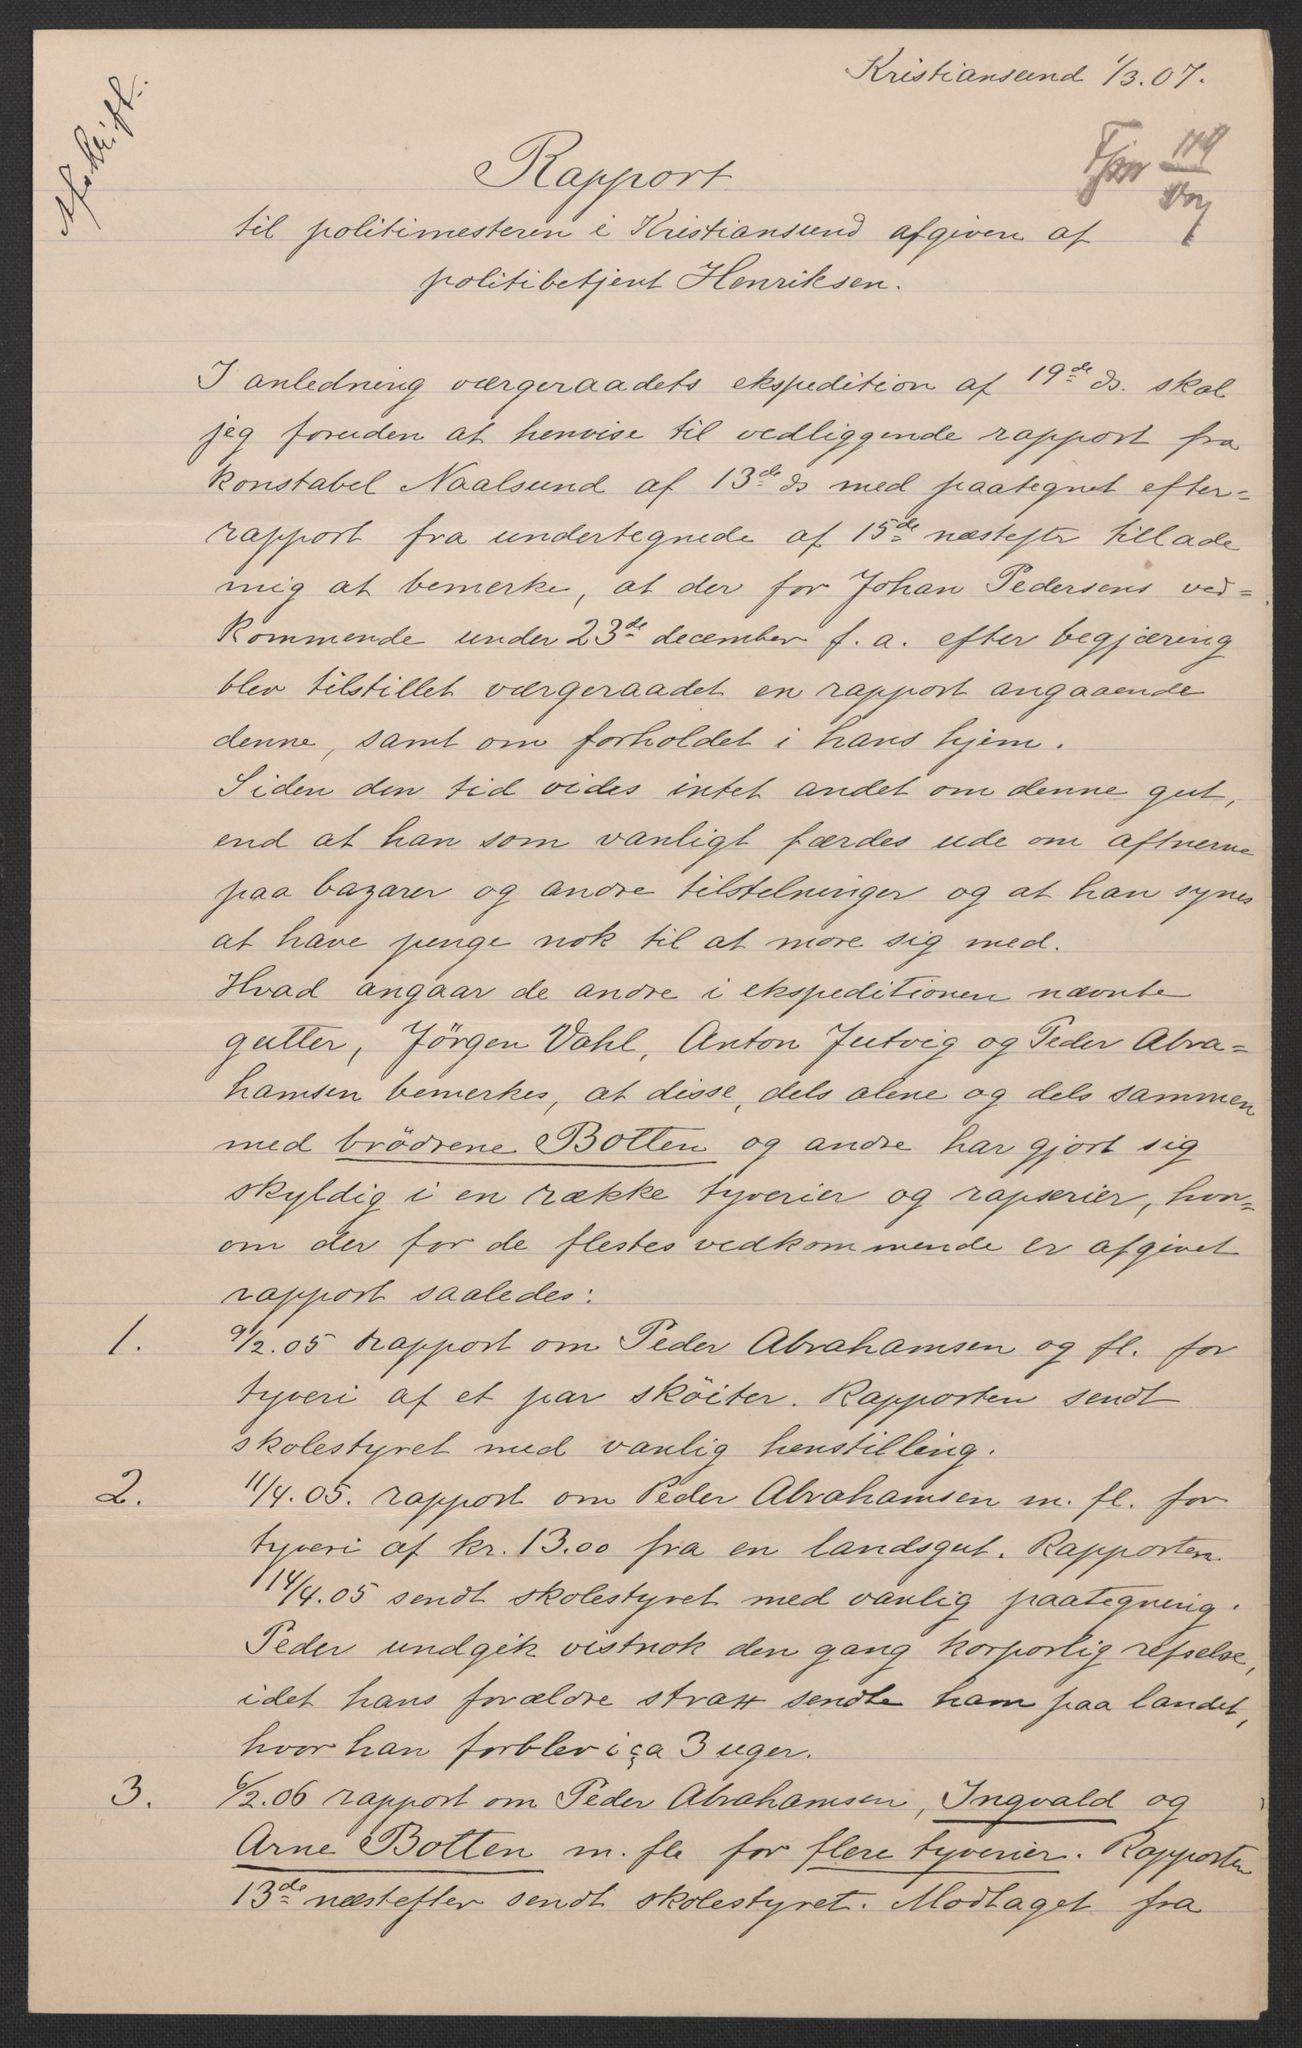 Afskrift.
Kristiansund 1/3.07.
119
Rapport
til politimesteren i Kristiansund afgiven af
politibetjent Henriksen.
I anledning værgeraadets ekspedition af 19de ds. skal
jeg foruden at henvise til vedliggende rapport fra
konstabel Naalsund af 13de ds med paategnet efter=
rapport fra undertegnede af 15de næstefter tillade
mig at bemerke, at der for Johan Pedersens ved=
kommende under 23de december f. a. efter begjæring
blev tilstillet værgeraadet en rapport angaaende
denne, samt om forholdet i hans hjem.
Siden den tid vides intet andet om denne gut,
end at han som vanligt færdes ude om aftnerne
paa bazarer og andre tilstelninger og at han synes
at have penge nok til at more sig med.
Hvad angaar de andre i ekspeditionen nævnte
gutter, Jörgen Vahl, Anton Jutvig og Peder Abra=
hamsen bemerkes, at disse, dels alene og dels sammen
med brödrene Botten og andre har gjort sig
skyldig i en række tyverier og rapserier, hvor=
om der for de flestes vedkommende er afgivet
rapport saaledes:
1. 9/2.05 rapport om Peder Abrahamsen og fl. for
tyveri af et par sköiter. Rapporten sendt
skolestyret med vanlig henstilling.
2. 11/4.05. rapport om Peder Abrahamsen m. fl. for
tyveri af kr. 13.00 fra en landsgut. Rapporten
14/4.05 sendt skolestyret med vanlig paategning.
Peder undgik vistnok den gang korporlig refselse,
idet hans forældre strax sendte ham paa landet,
hvor han forblev i ca 3 uger.
3. 6/2.06 rapport om Peder Abrahamsen, Ingvald og
Arne Botten m. fle for flere tyverier. Rapporten
13de næstefter sendt skolestyret. Modtaget fra